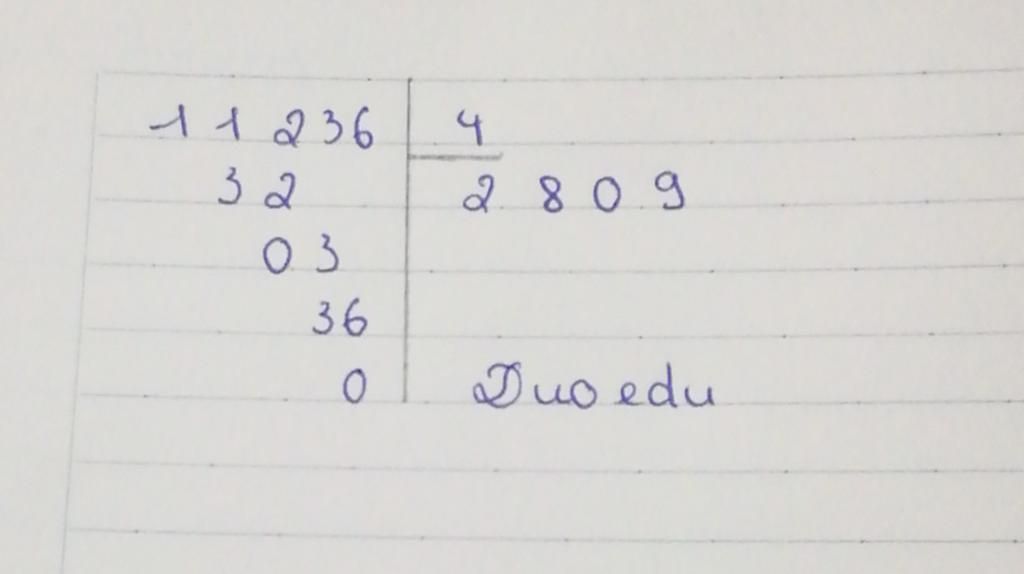 11236 4
32 2809
03
36
0 Duo edu